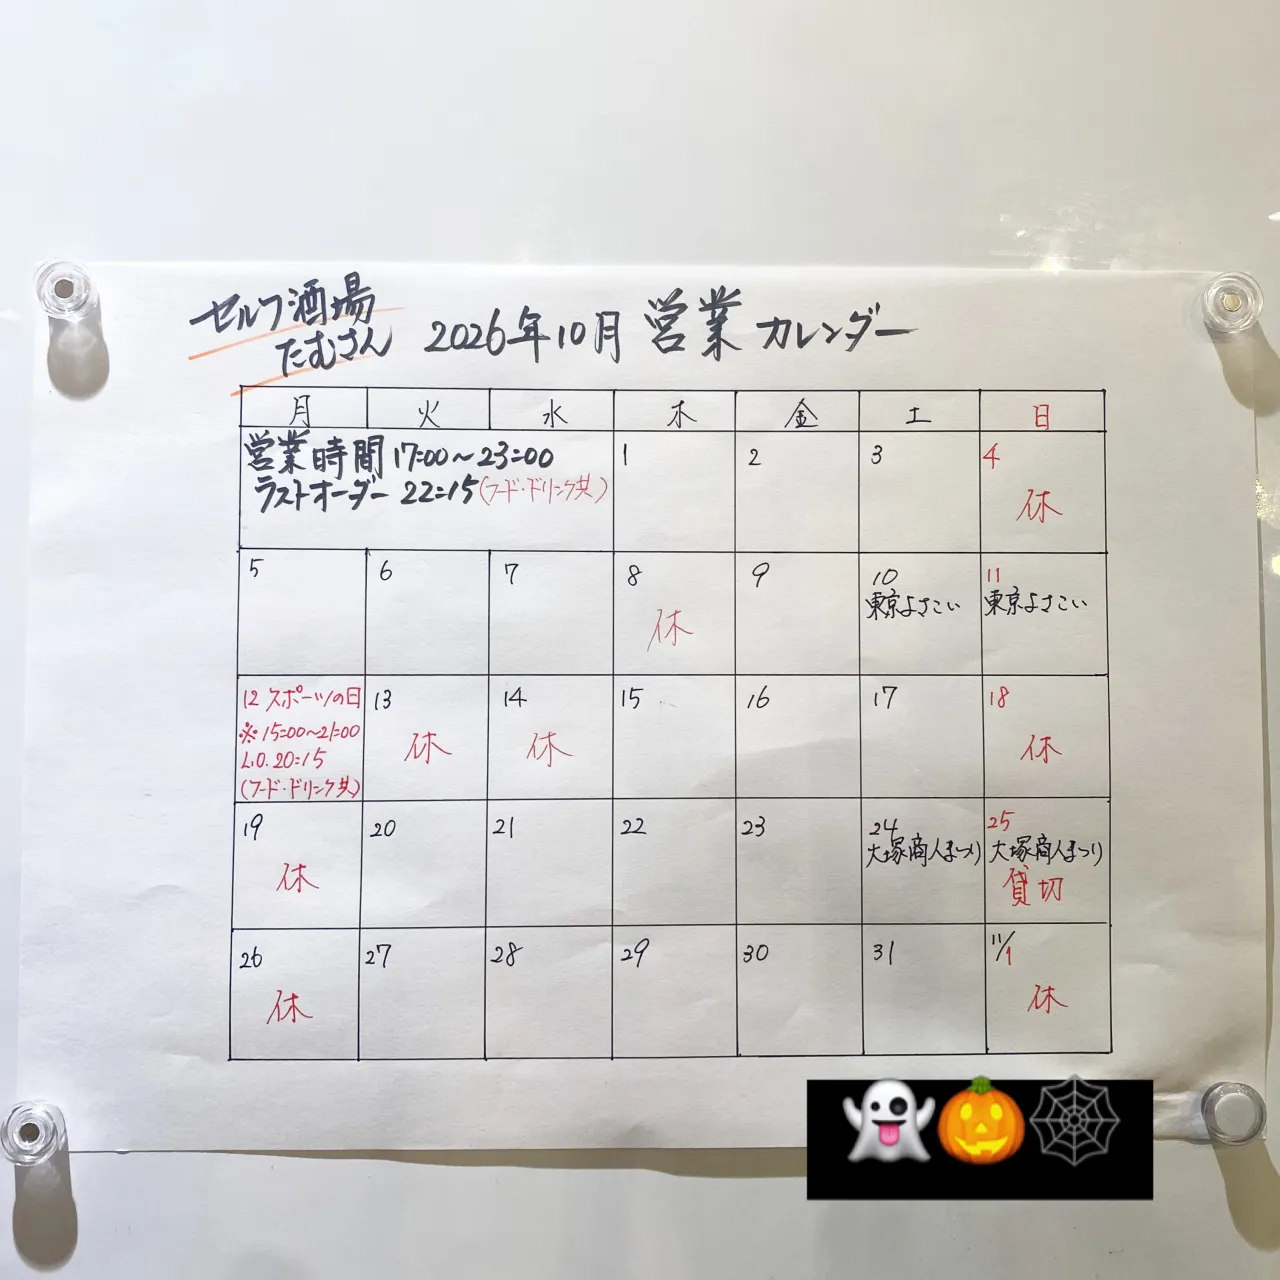 セルフ酒場
たむさん
2026年10月 営業カレンダー
月 火 水 木 金 土 日
営業時間 17:00〜23:00
ラストオーダー 22:15(フード・ドリンク共)
1 2 3 4
休
5 6 7 8 9 10 11
東京よさこい 東京よさこい
休
12 スポーツの日 13 14 15 16 17 18
※15:00〜21:00
L.O. 20:15
(フード・ドリンク共)
休 休 休
19 20 21 22 23 24 25
大塚商人まつり 大塚商人まつり
休 貸切
26 27 28 29 30 31 11/1
休 休